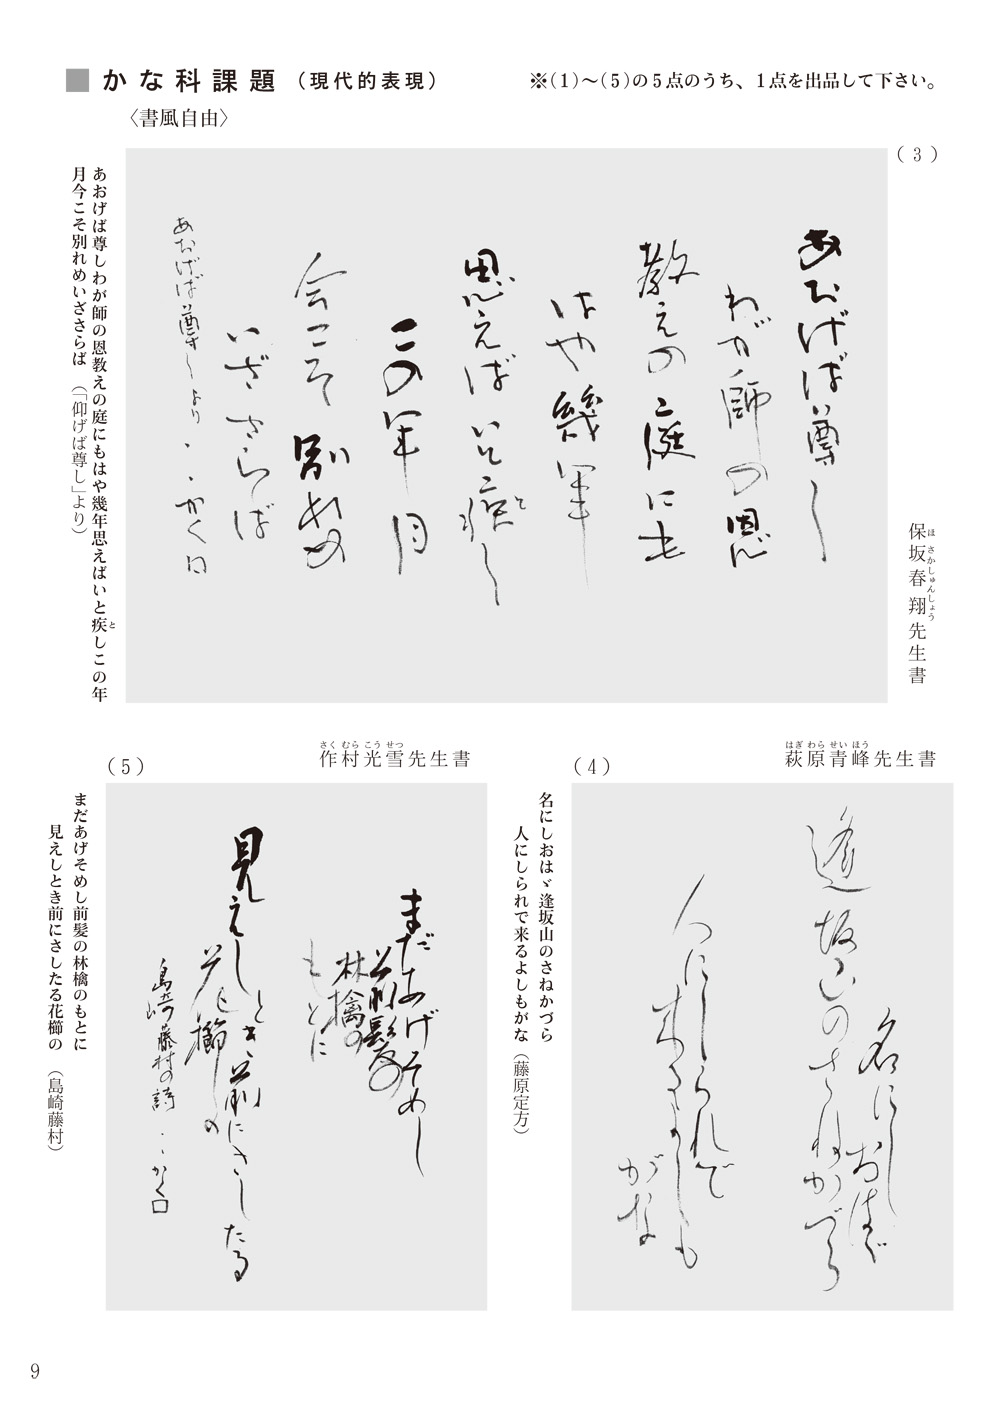 ■かな科課題（現代的表現）
※(1)～(5)の5点のうち、1点を出品して下さい。
〈書風自由〉
(3)
あおげば尊し
わが師の恩
教えの庭にも
はや幾年
思えばいと疾し
と
この年月
今こそ別れめ
いざさらば
あおげば尊しより・・かく口
保坂春翔先生書
ほさかしゅんしょう
あおげば尊しわが師の恩教えの庭にもはや幾年思えばいと疾しこの年
と
月今こそ別れめいざさらば（「仰げば尊し」より）
(4)
萩原青峰先生書
はぎわらせいほう
名にしおはゞ
逢坂山のさねかづら
人にしられで
来るよしも
がな
名にしおはゞ逢坂山のさねかづら
人にしられで来るよしもがな（藤原定方）
(5)
作村光雪先生書
さくむらこうせつ
まだあげそめし
前髪の
林檎の
もとに
見えし
とき前にさしたる
花櫛の
島崎藤村の詩・・かく口
まだあげそめし前髪の林檎のもとに
見えしとき前にさしたる花櫛の（島崎藤村）
9